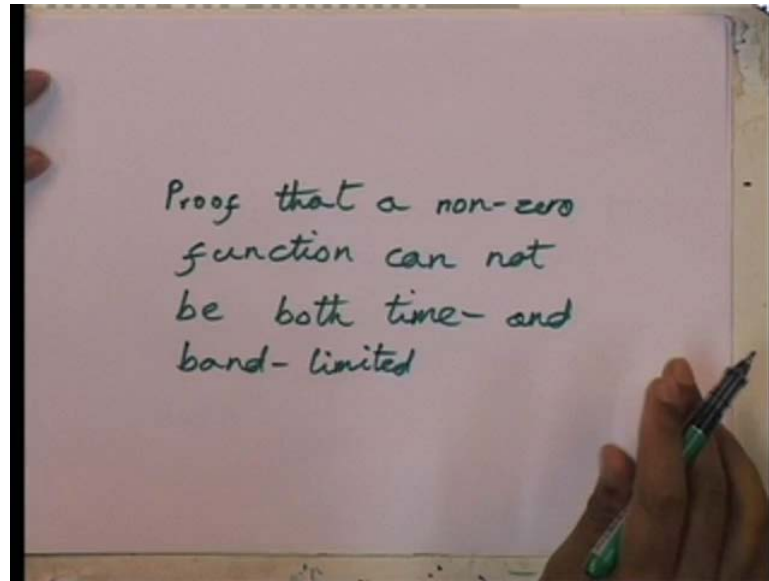 Proof that a non-zero
function can not
be both time- and
band-limited